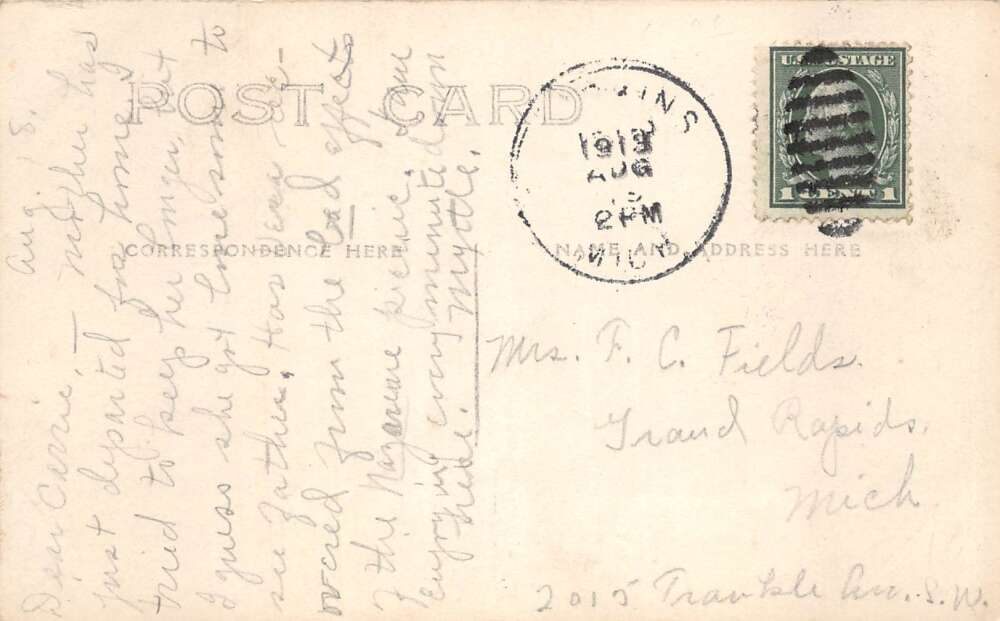 POST CARD
CORRESPONDENCE HERE
NAME AND ADDRESS HERE
U.S. POSTAGE
1 CENT 1
1913
AUG
2 PM
MICH.
Aug. 8.
Dear Carrie, — Mother has
just departed for home, I
tried to keep her longer, but
I guess she got lonesome to
see Father. Has Eva re-
covered from the bad effects
of the Nazarene picnic. I am
Enjoying every minute down
here. Myrtle.
Mrs. F. C. Fields.
Grand Rapids.
Mich
2015 Ave. S.W.